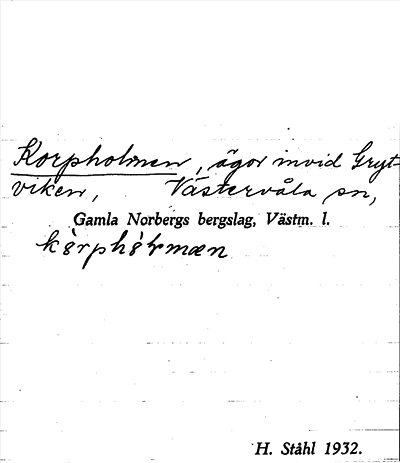 Korpholmen, ägor invid Gryt-
viken, Västervåla sn,
Gamla Norbergs bergslag, Västm. l.
H. Ståhl 1932.